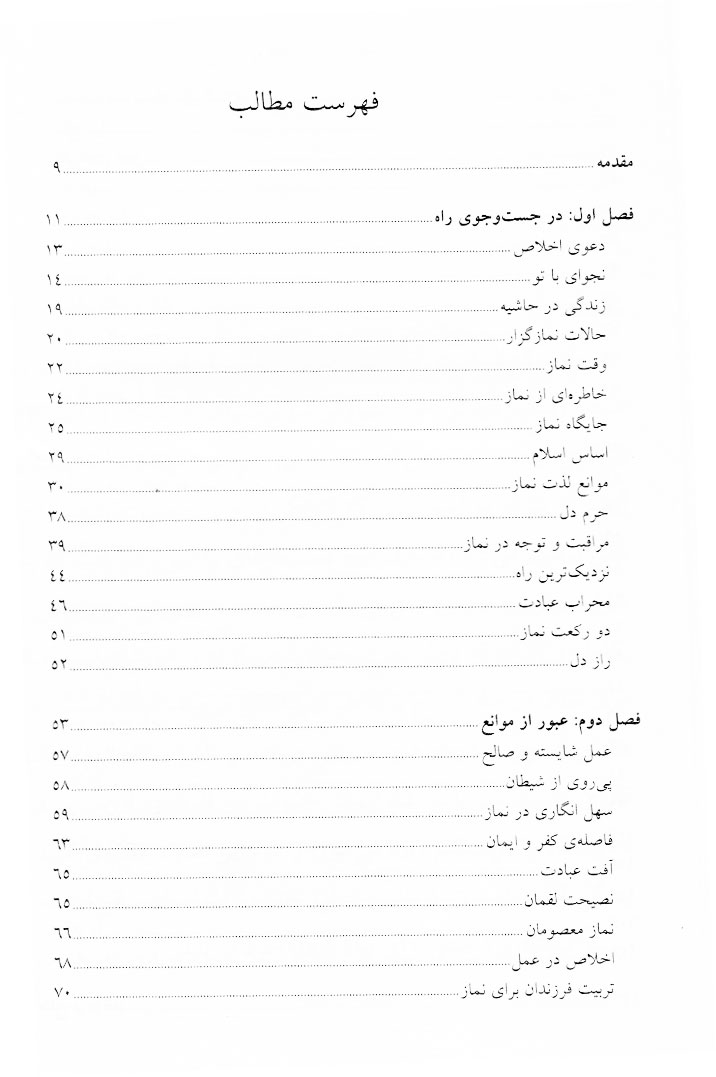 فهرست مطالب
مقدمه ........ ۹
فصل اول: در جست‌وجوی راه ........ ۱۱
دعوی اخلاص ........ ۱۳
نجوای با تو ........ ۱٤
زندگی در حاشیه ........ ۱۹
حالات نمازگزار ........ ۲۰
وقت نماز ........ ۲۲
خاطره‌ای از نماز ........ ۲٤
جایگاه نماز ........ ۲٥
اساس اسلام ........ ۲۹
موانع لذت نماز ........ ۳۰
حرم دل ........ ۳۸
مراقبت و توجه در نماز ........ ۳۹
نزدیک‌ترین راه ........ ٤٤
محراب عبادت ........ ٤٦
دو رکعت نماز ........ ٥۱
راز دل ........ ٥۲
فصل دوم: عبور از موانع ........ ٥۳
عمل شایسته و صالح ........ ٥۷
پی‌روی از شیطان ........ ٥۸
سهل انگاری در نماز ........ ٥۹
فاصله‌ی کفر و ایمان ........ ٦۳
آفت عبادت ........ ٦٥
نصیحت لقمان ........ ٦٥
نماز معصومان ........ ٦٦
اخلاص در عمل ........ ٦۸
تربیت فرزندان برای نماز ........ ۷۰